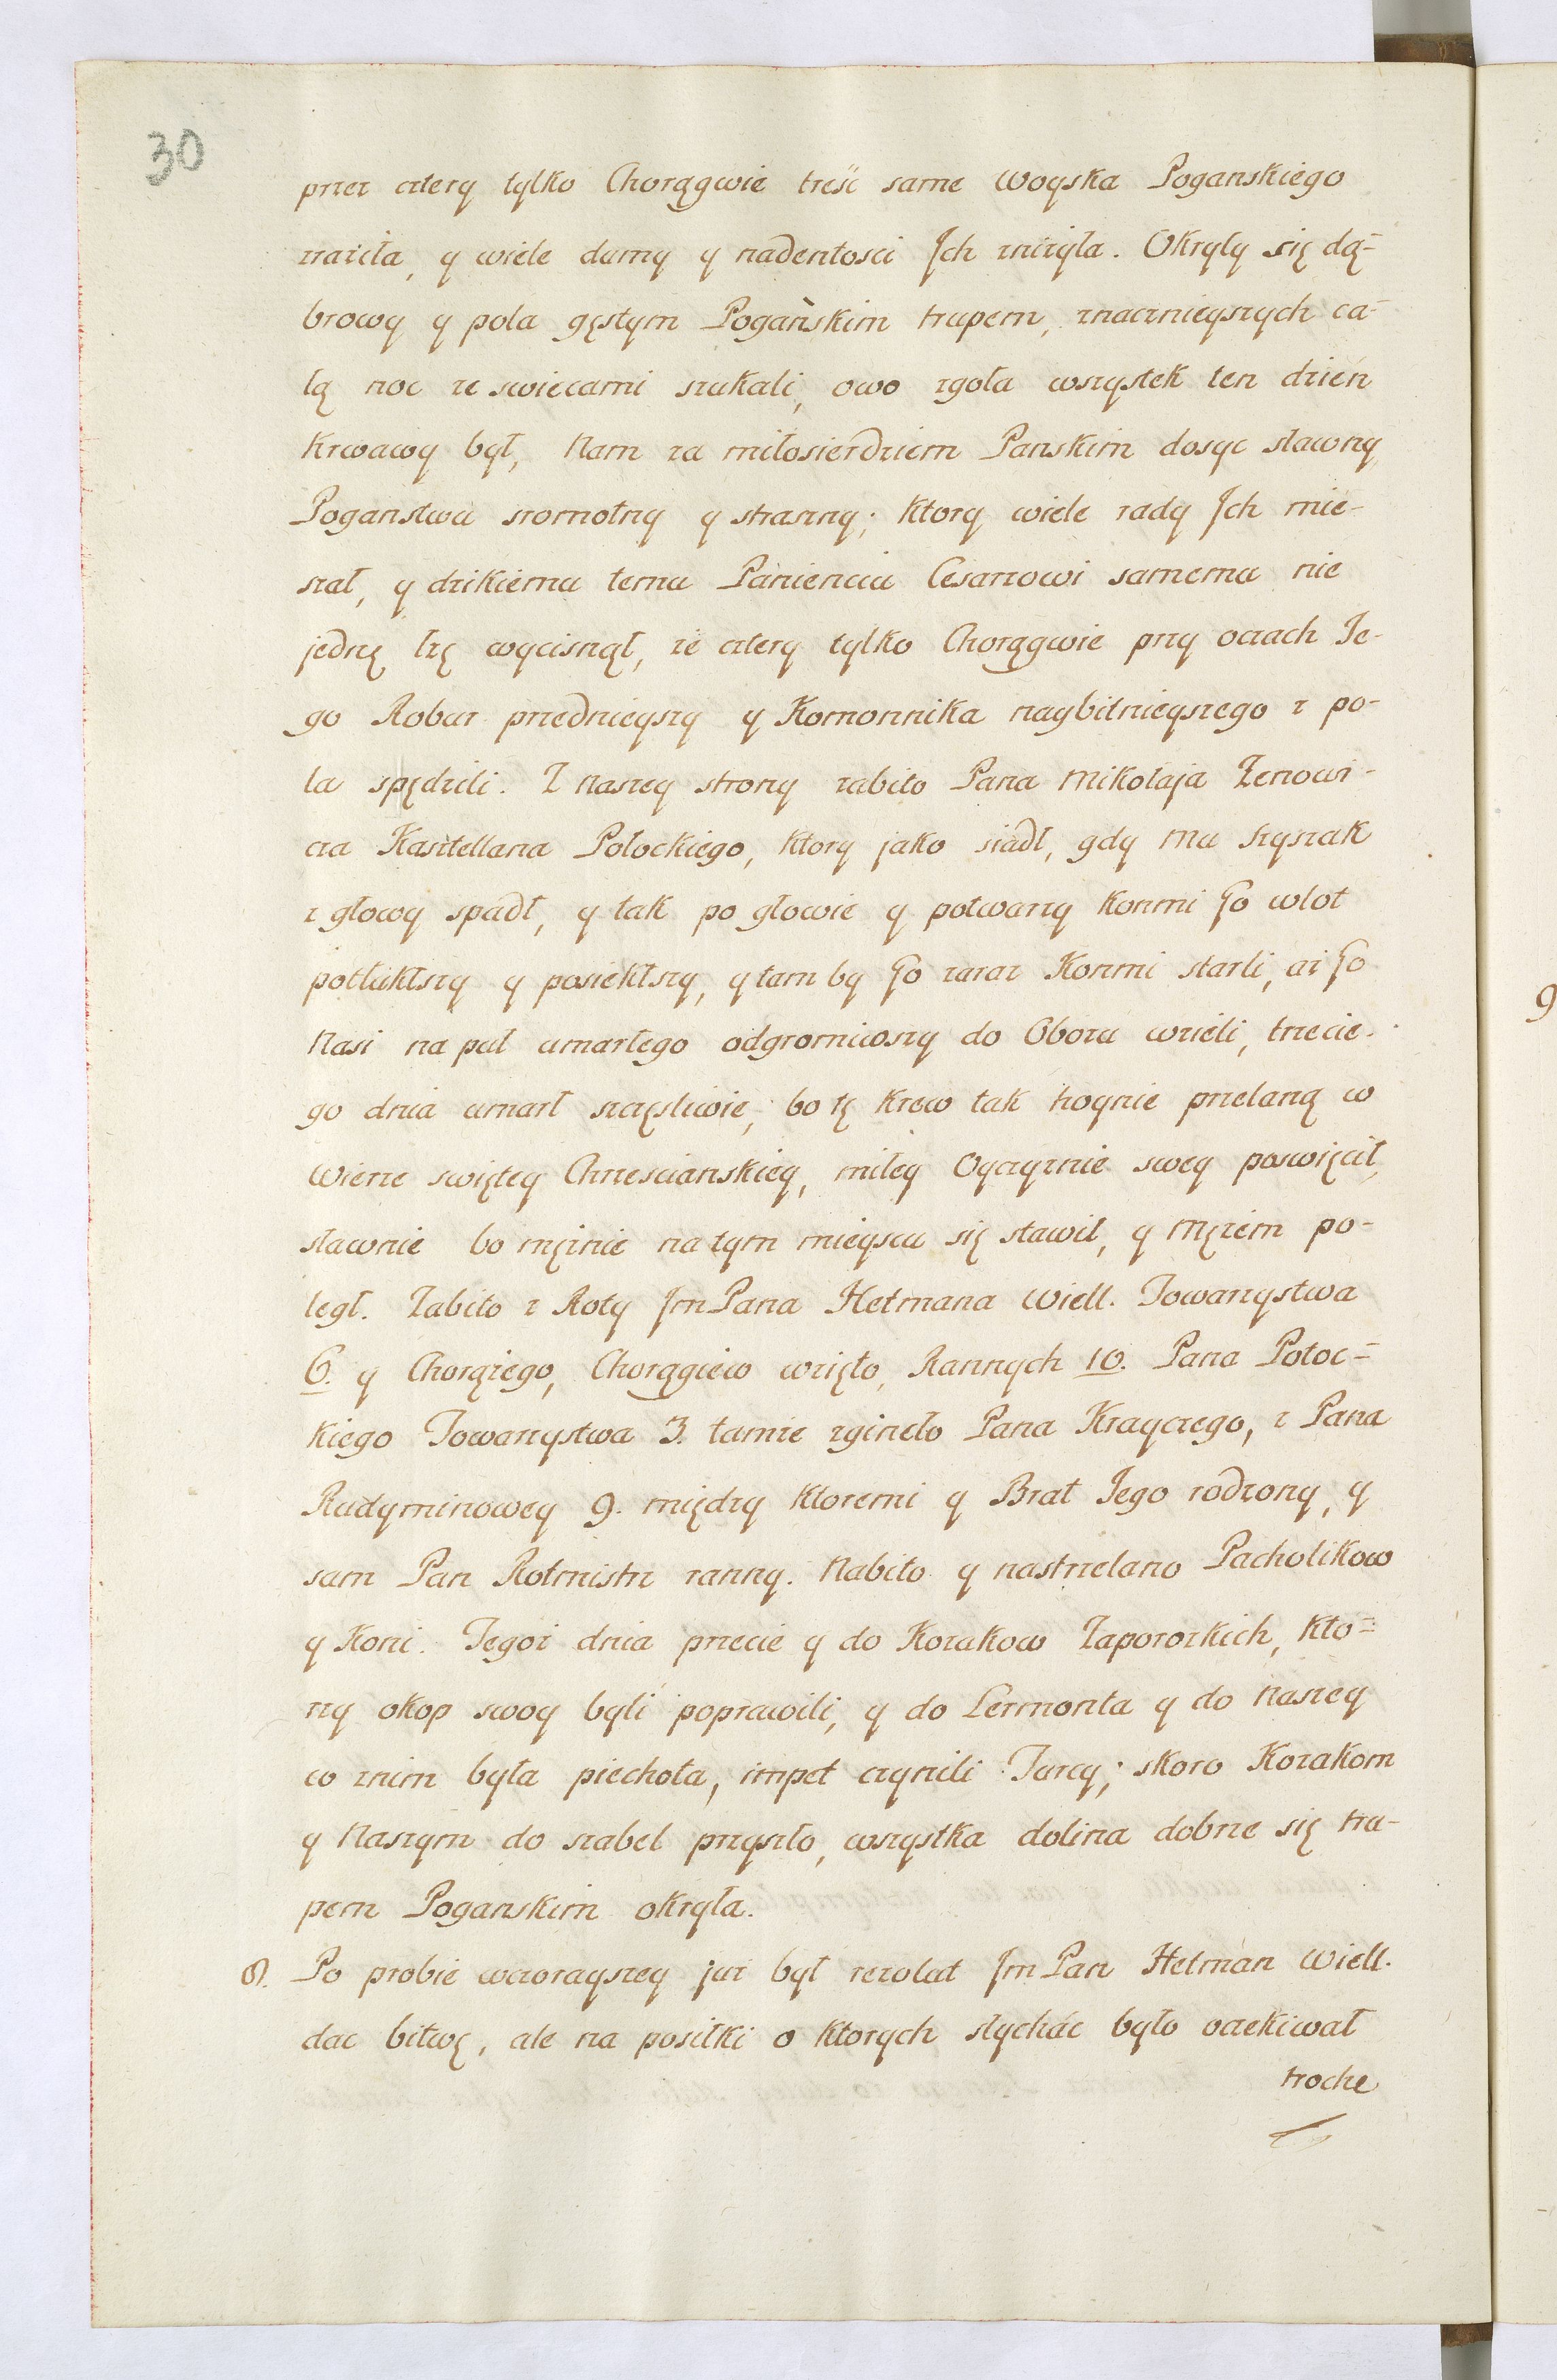 30
przez cztery tylko Chorągwie treść same Woyska Poganskiego
zraziła, y wiele dumy y nadentosci Ich zniżyła. Okryły się dą=
browy y pola gęstym Pogańskim trupem, znacznieyszych ca=
łą noc ze swiecami szukali, owo zgoła wszystek ten dzień
Krwawy był, Nam za miłosierdziem Panskim dosyc sławny
Poganstwu sromotny y straszny; Ktory wiele rady Ich mie-
szał, y dzikiemu temu Panienciu Cesarzowi samemu nie
jednę łzę wycisnął, że cztery tylko Chorągwie przy oczach Je-
go Robur przednieyszy y Komonnika naybitnieyszego z po-
la spędzili. Z Naszey strony zabito Pana Mikołaja Zenowi-
cza Kasztellana Połockiego, Ktory jako siadł, gdy Mu szyszak
z głowy spadł, y tak po głowie y potwarzy Konmi Go wlot
potłukłszy y posiekłszy, y tam by Go zaraz Konmi starli, aż Go
Nasi na puł umarłego odgromiwszy do Obozu wzieli, trzecie-
go dnia umarł szczęsliwie, bo tę Krew tak hoynie przelaną w
Wierze swiętey Chrzescianskiey, miłey Oyczyznie swey poswięcił,
sławnie bo mężnie na tym mieyscu się stawił, y Mężem po-
legł. Zabito z Roty Jm Pana Hetmana Wiell. Towarzystwa
6. y Chorążego, Chorągiew wzięto, Rannych 10. Pana Potoc=
kiego Towarzystwa 3. tamże zgineło Pana Krayczego, z Pana
Rudyminowey 9. między Ktoremi y Brat Jego rodzony, y
sam Pan Rotmistrz ranny. Nabito y nastrzelano Pacholikow
y Koni. Tegoż dnia przecie y do Kozakow Zaporozkich, Kto=
rzy okop swoy byli poprawili, y do Lermonta y do Naszey
co znim była piechota, impet czynili Turcy; skoro Kozakom
y Naszym do szabel przyszło, wszystka dolina dobrze się tru-
pem Poganskim okryła.
8. Po probie wczorayszey już był rezolut Jm Pan Hetman Wiell.
dac bitwę, ale na posiłki o Ktorych słychać było oczekiwał
troche
9